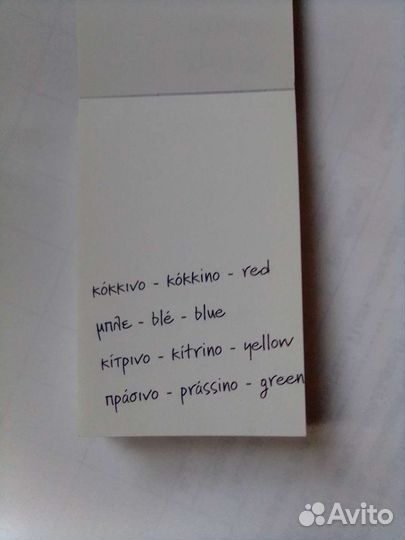 κόκκινο - kókkino - red
μπλε - blé - blue
κίτρινο - kítrino - yellow
πράσινο - prássino - green
Avito